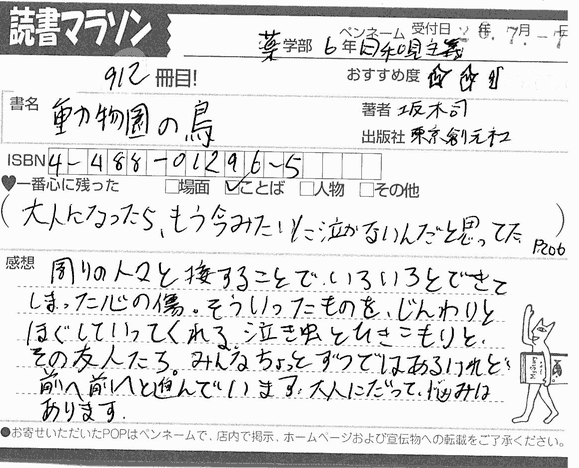 読書マラソン
ペンネーム 受付日 年 7月
薬学部 6年 日和見主義
912冊目!
おすすめ度 ☆☆
書名 動物園の鳥
著者 坂木司
出版社 東京創元社
ISBN 4-488-01296-5
♥一番心に残った □場面 ☑ことば □人物 □その他
(大人になったら、もう今みたいに泣かないんだと思ってた。) P206
感想 周りの人々と接することで、いろいろとできて
しまった心の傷。そういったものを、じんわりと
ほぐしていってくれる。泣き虫とひきこもりと、
その友人たち。みんなちょっとずつではあるけれど
前へ前へと進んでいます。大人にだって、悩みは
あります。
●お寄せいただいたPOPはペンネームで、店内で掲示、ホームページおよび宣伝物への転載をご了承ください。